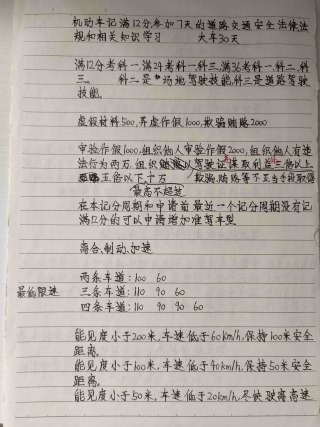 机动车记满12分参加7天的道路交通安全法律法
规和相关知识学习 大车30天
满12分考科一.满24考科一.科三.满36考科一.科二.科
三。 科二是场地驾驶技能.科三是道路驾驶
技能。
虚假材料500,弄虚作假1000,欺骗贿赂2000
审验作假1000,组织他人审验作假2000,组织他人有违
法行为两万.组织 以驾驶证获取利益三倍以上
五倍以下十万 欺骗.贿赂等不正当手段取得
最高不超过
在本记分周期和申请前最近一个记分周期没有记
满12分的可以申请增加准驾车型
离合、制动、加速
两条车道:100 60
最低限速 三条车道:110 90 60
四条车道:110 90 90 60
能见度小于200米,车速低于60km/h,保持100米安全
距离。
能见度小于100米,车速低于40km/h,保持50米安全
距离。
能见度小于50米,车速低于20km/h,尽快驶离高速